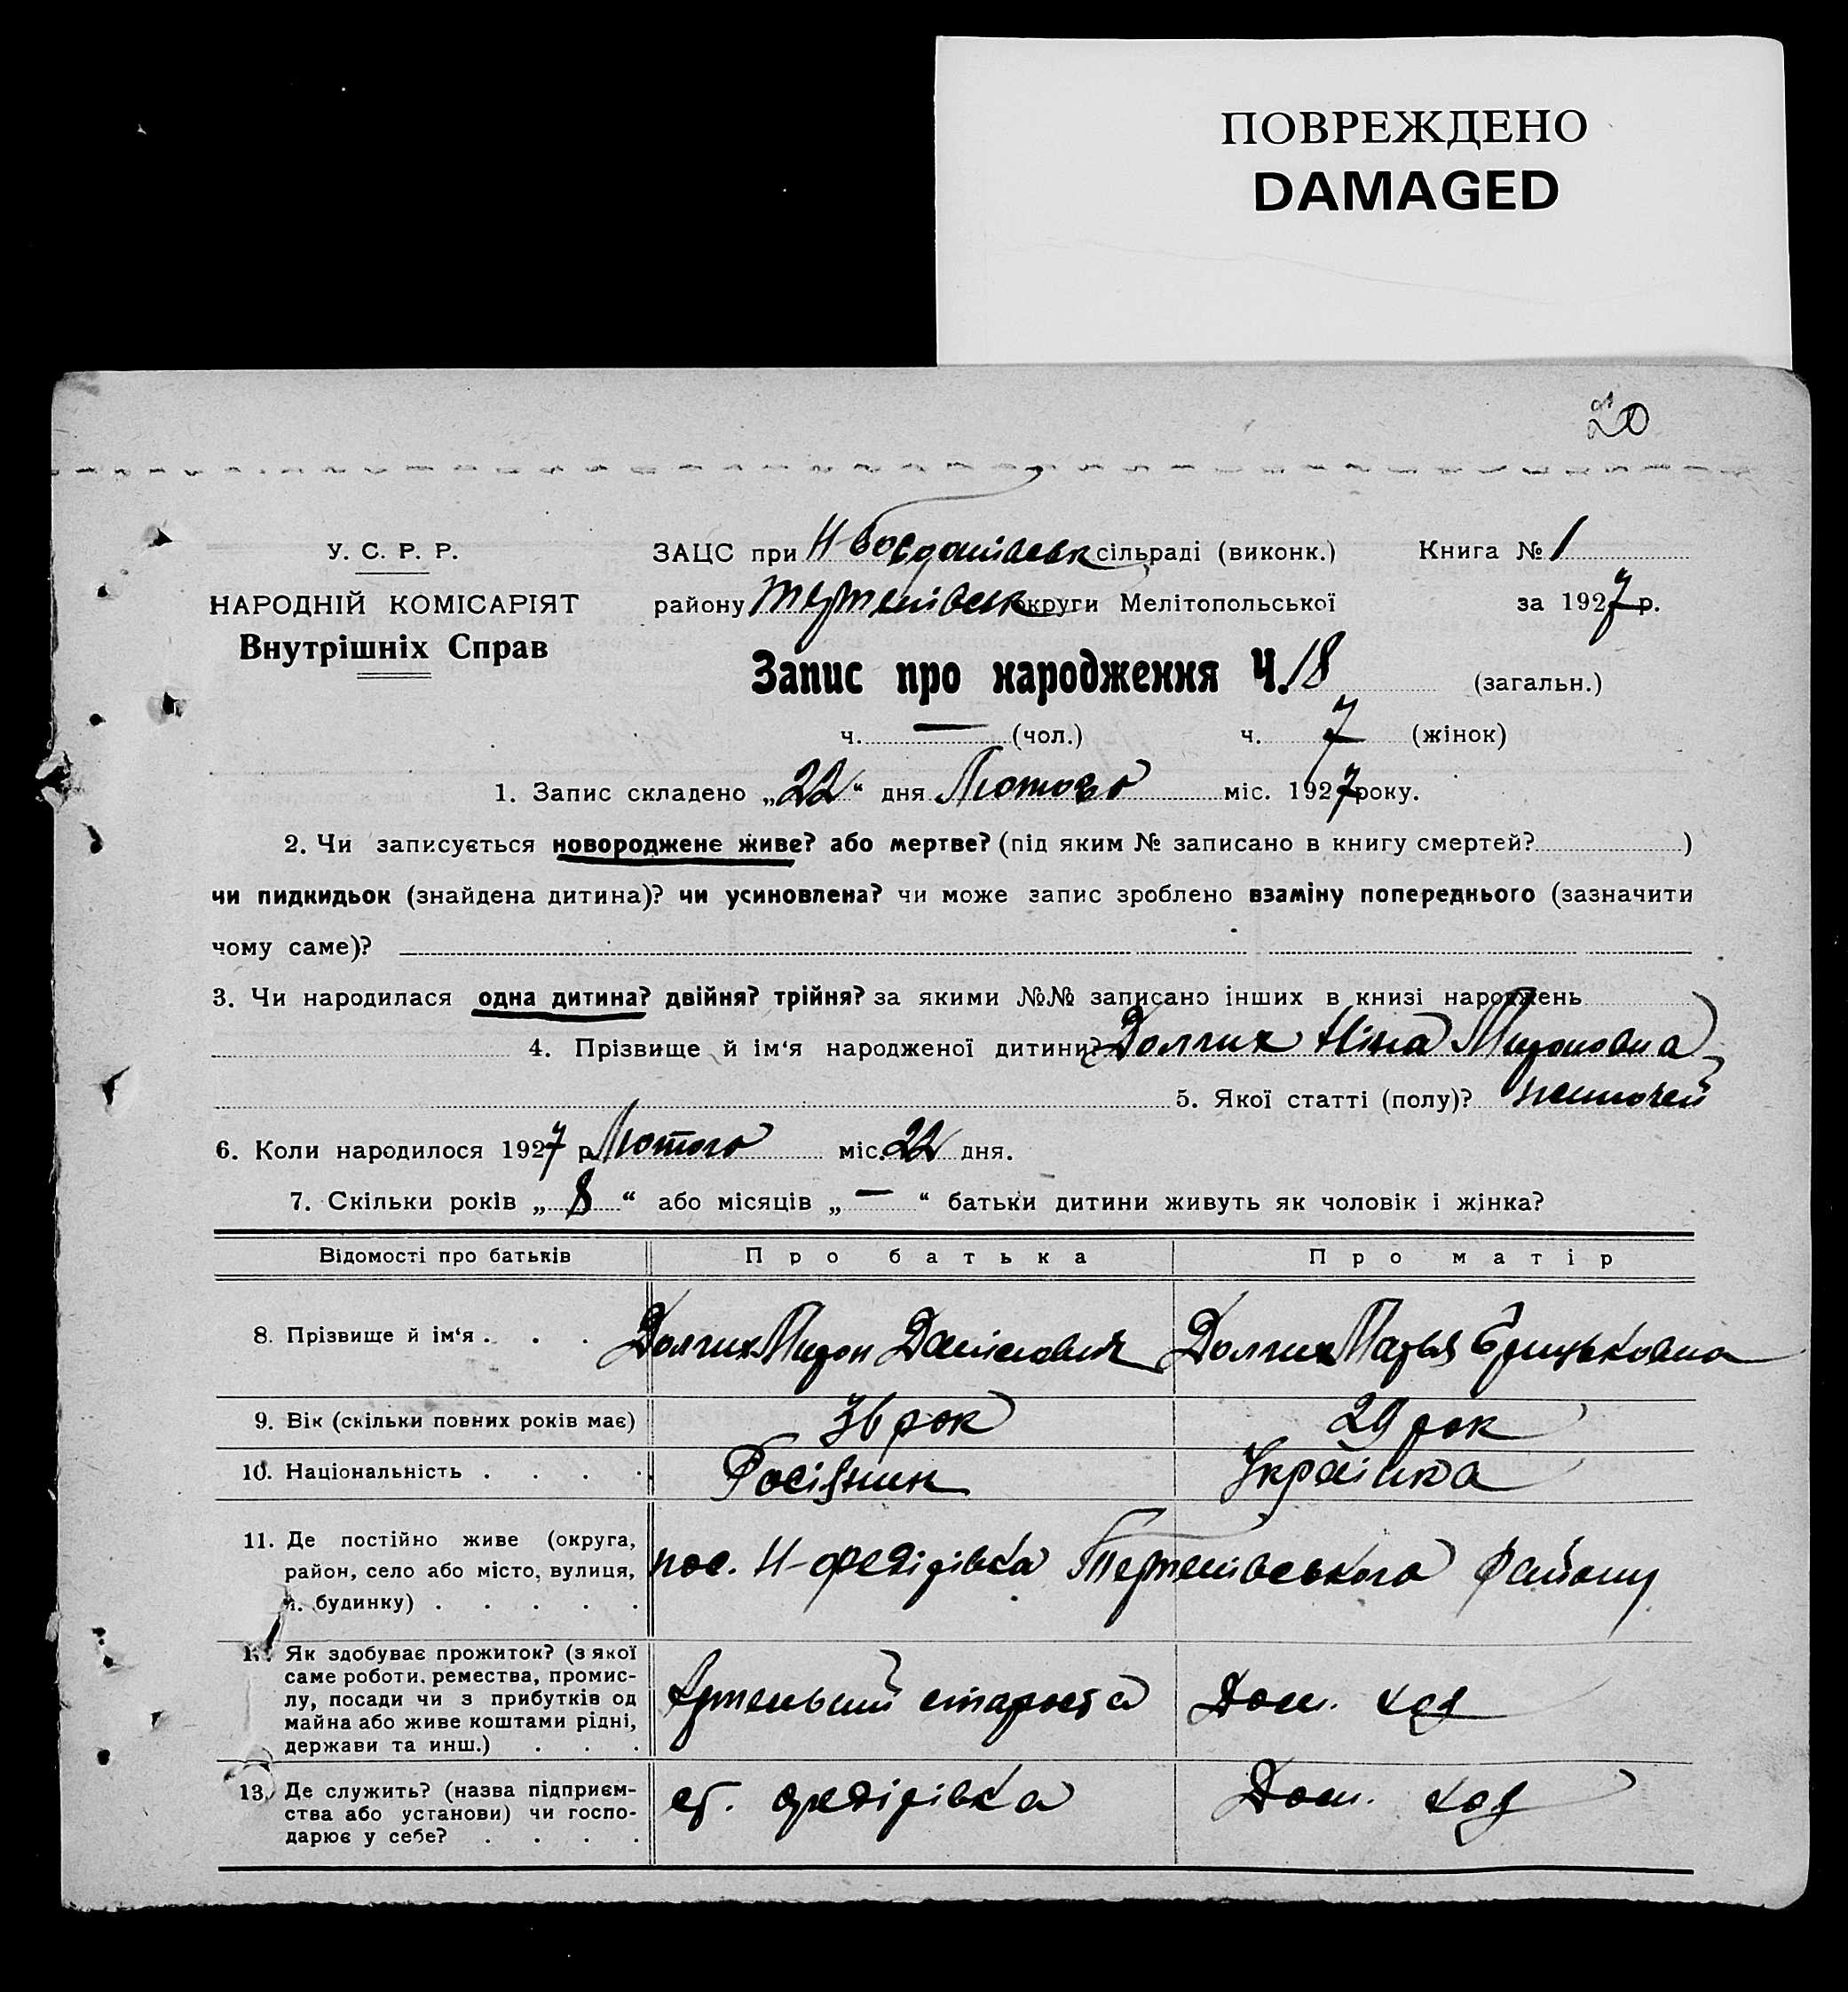 ПОВРЕЖДЕНО
DAMAGED
20
У. С. Р. Р.
НАРОДНІЙ КОМІСАРІЯТ
Внутрішніх Справ
ЗАЦС при Н Богданівськ сільраді (виконк.) Книга № 1
району Терпенівськ округи Мелітопольської за 1927 р.
Запис про народження Ч. 18 (загальн.)
ч. — (чол.) ч. 7 (жінок)
1. Запис складено „22“ дня Лютого міс. 1927 року.
2. Чи записується новороджене живе? або мертве? (під яким № записано в книгу смертей? )
чи пидкидьок (знайдена дитина)? чи усиновлена? чи може запис зроблено взаміну попереднього (зазначити
чому саме)?
3. Чи народилася одна дитина? двійня? трійня? за якими №№ записано інших в книзі народжень
4. Прізвище й ім‘я народженої дитини? Долгих Ніна Мироновна
5. Якої статті (полу)?
6. Коли народилося 1927 р. Лютого міс. 22 дня.
7. Скільки років „8“ або місяців „—“ батьки дитини живуть як чоловік і жінка?
Відомості про батьків Про батька Про матір
8. Прізвище й ім‘я . . . Долгих Мирон Данілович Долгих Марья Грицьковна
9. Вік (скільки повних років має) 36 рок 29 рок
10. Національність . . . . Росіянин Українка
11. Де постійно живе (округа,
район, село або місто, вулиця,
н. будинку) . . . . .
пос. Н-Федірівка Терпенівського району
Як здобуває прожиток? (з якої
саме роботи, ремества, промис-
лу, посади чи з прибутків од
майна або живе коштами рідні,
держави та инш.) . . .
Артельний староста Дом. хоз
13. Де служить? (назва підприєм-
ства або установи) чи госпо-
дарює у себе? . . . .
ст. Федірівка Дом. хоз